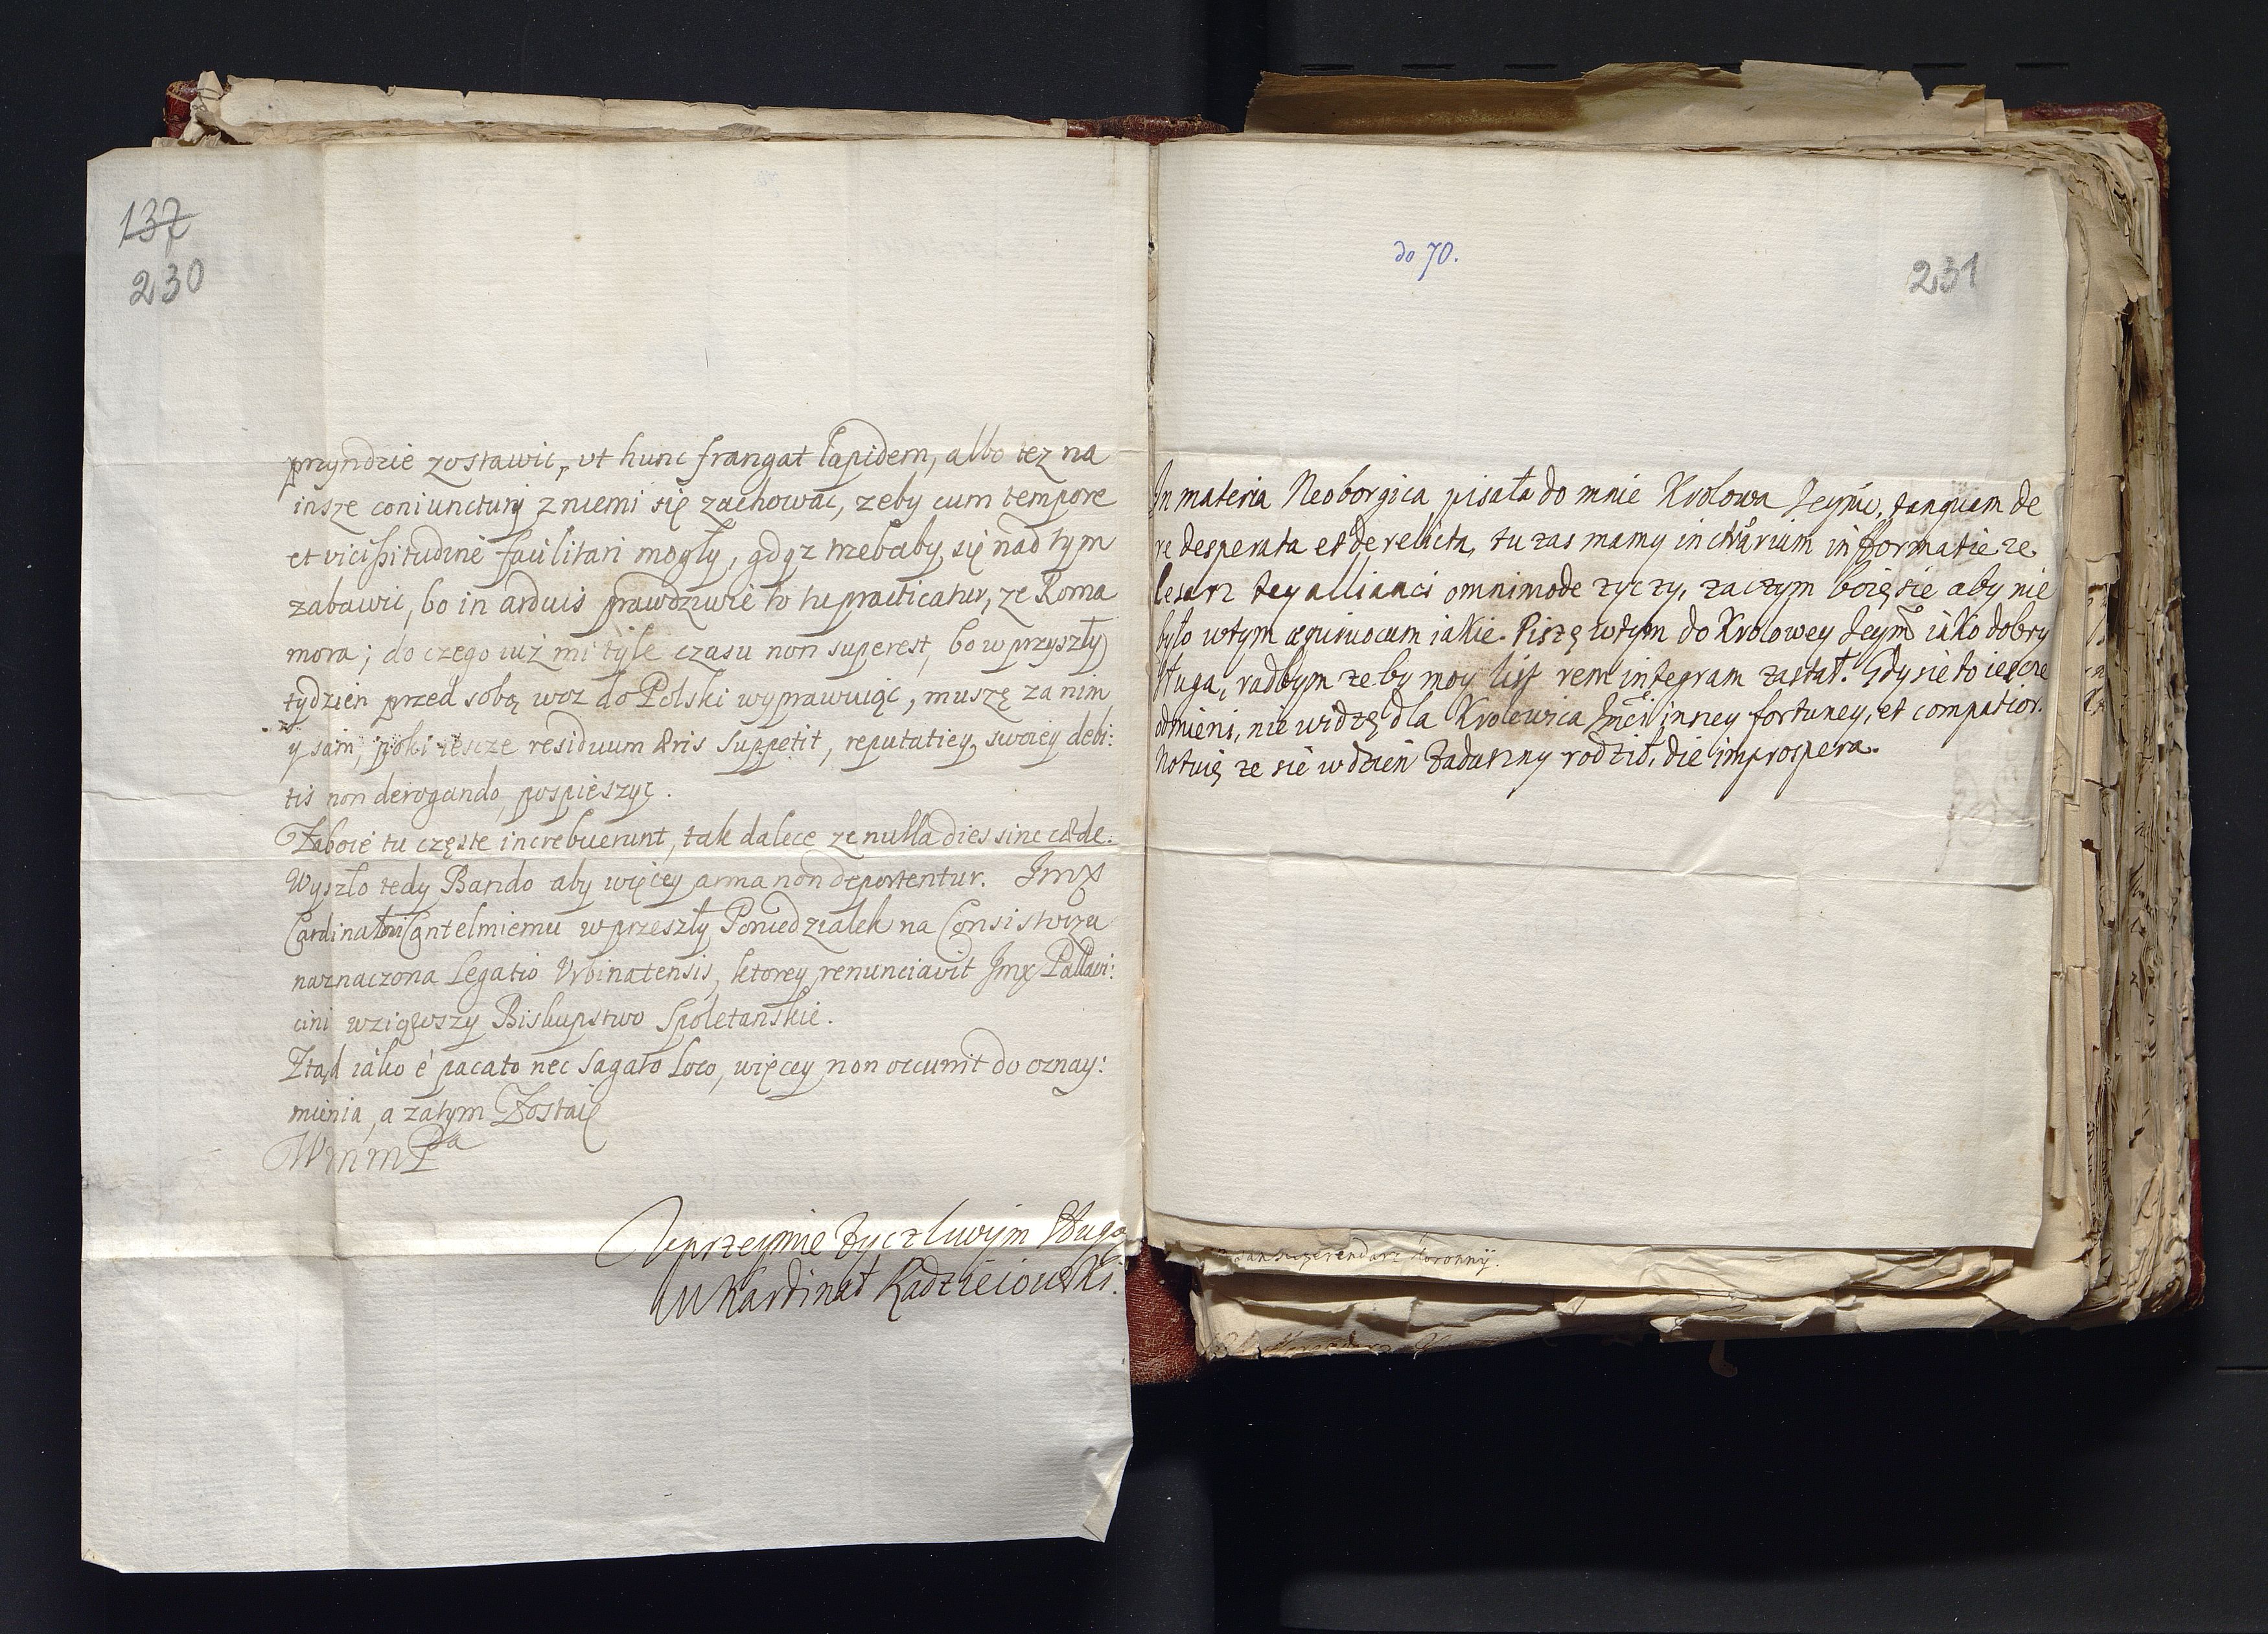 137
230
przyndzie zostawic, vt hunc frangat lapidem, albo tez na
insze coniunctury z niemi się zachowac, zeby cum tempore
et vicissitudine facilitari mogły, gdyz trzebaby się nad tym
zabawic, bo in arduis prawdziwie to tu practicatur, ze Roma
mora; do czego iuż mi tyle czasu non superest, bo w przyszły
tydzien przed sobą woz do Polski wyprawuiąc, muszę za nim
y sam, poki iescze residuum æris suppetit, reputatiey swoiey debi:
tis non derogando, pospieszyc.
Zaboie tu częste increbuerunt, tak dalece ze nulla dies sine cæde.
Wyszło tedy Bando aby więcey arma non deportentur. Jmx
Cardinałowi Cantelmiemu w przeszły Poniedziałek na Consistorzu
naznaczona Legatio Vrbinatensis, ktorey renunciavit Jmx Pallavi:
cini wziąwszy Biskupstwo Spoletanskie.
Ztąd iako è pacato nec sagato loco, więcey non occurrit do oznay:
mienia, a zatym Zostaię
WmmPa
Uprzeymie zyczliwym sługą
M Kardinał Radzieiowski.
do 70.
231
In materia Neoborgica pisała do mnie Krolowa Jeymć, tanquam de
re desperata et derelicta, tu zas mamy in ctrarium informatie ze
Cesarz tey allianci omnimode zyczy, zaczym boię sie aby nie
było w tym æquiuocum iakie. Piszę w tym do Krolowey Jeym iako dobry
sługa, radbym ze by moy list rem integram zastał. Gdy sie to iescze
odmieni, nie widzę dla Krolewica Jmći inney fortuney, et compatior.
Notuię ze sie w dzien Zaduszny rodził, die improspera.
Jan Referendarz Koronny.